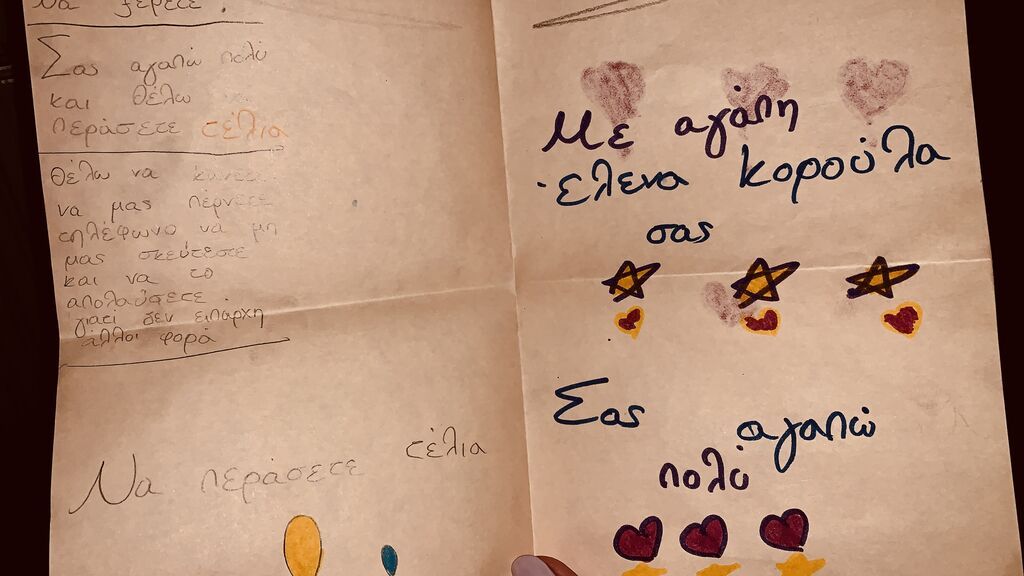 Να ξέρετε.
Σας αγαπώ πολύ
και θέλω
περάσετε τέλια
Θέλω να κάνετε
να μας πέρνετε
τηλέφωνο να μη
μας σκεύτεστε
και να το
απολαύσετε.
γιατί δεν ειπαρχη
άλλοι φορά
Να περάσετε τέλια
Με αγάπη
ελενα κορούλα
σας
Σας αγαπώ
πολύ